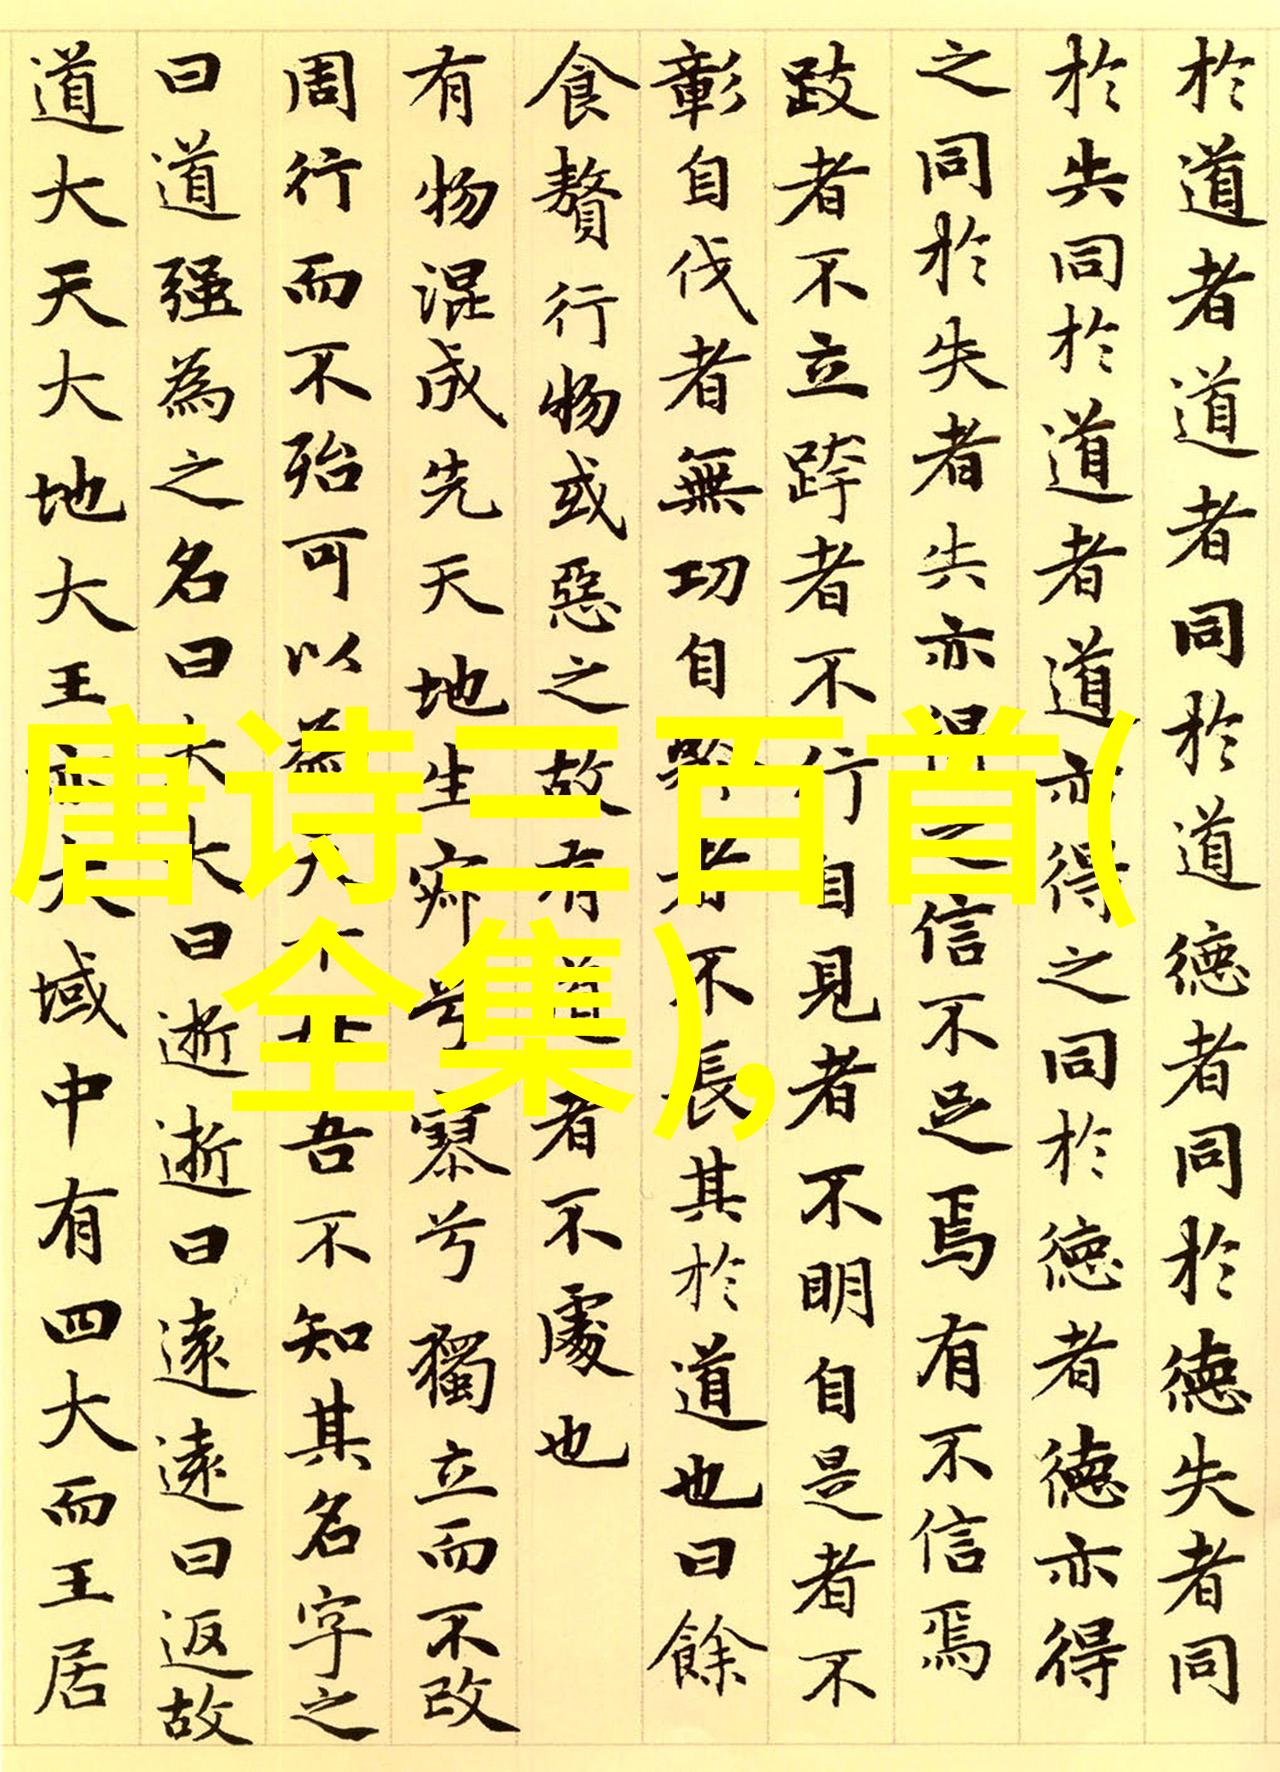 於道者道者同於道德者同於德失者同
於失同於道者道亦得之同於德者德亦得
之同於失者失亦得之信不足焉有不信焉
跂者不立跨者不行自見者不明自是者不
彰自伐者無功自矜者不長其於道也曰餘
食贅行物或惡之故有道者不處也
有物混成先天地生寂兮寥兮獨立而不改
周行而不殆可以為天下母吾不知其名字之
曰道强為之名曰大大曰逝逝曰遠遠曰返故
道大天大地大王亦大域中有四大而王居
唐诗三百首(
全集),